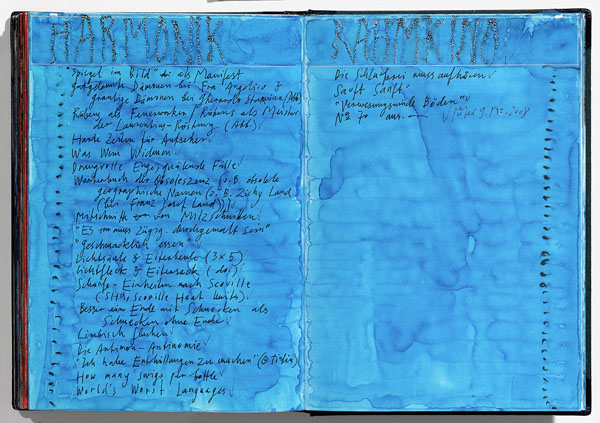 HARMONIK
"Spiegel im Bild" als Manifest
gutgelaunte Dämonen bei Fra Angelico &
grantige Dämonen bei
Rubens als Feuerwerker / Rubens als Meister
der Laurentius-Röstung (Abb.)
Harte Zeiten für Aufseher
Was Wem Widmen
Drangvolle Enge, quälende Fülle
Wörterbuch der Obsoleszenz (z.B. obsolete
geographische Namen (z.B. Zichy Land
(bei Franz Josef Land))
Mitschnitte von Milzschnitten
"Es muss zügig durchgemalt sein"
"geschmacklich essen"
Lichtsäule & Eitersäule (3x5)
Lichtfleck & Eitersack (do.)
Schärfe-Einheiten nach Scoville
(SHU, Scoville Heat Units)
Besser ein Ende mit Schmecken als
Schmecken ohne Ende
Limbisch fluchen
Die Antimon-Antinomie
"Ich habe Enthüllungen zu machen"
How many swigs per bottle
World's Worst Languages
RAHMKINO
Die Schlaferei muss aufhören
Sauft Sanft
"Verwesungsmüde Böden"
No 70 aus.